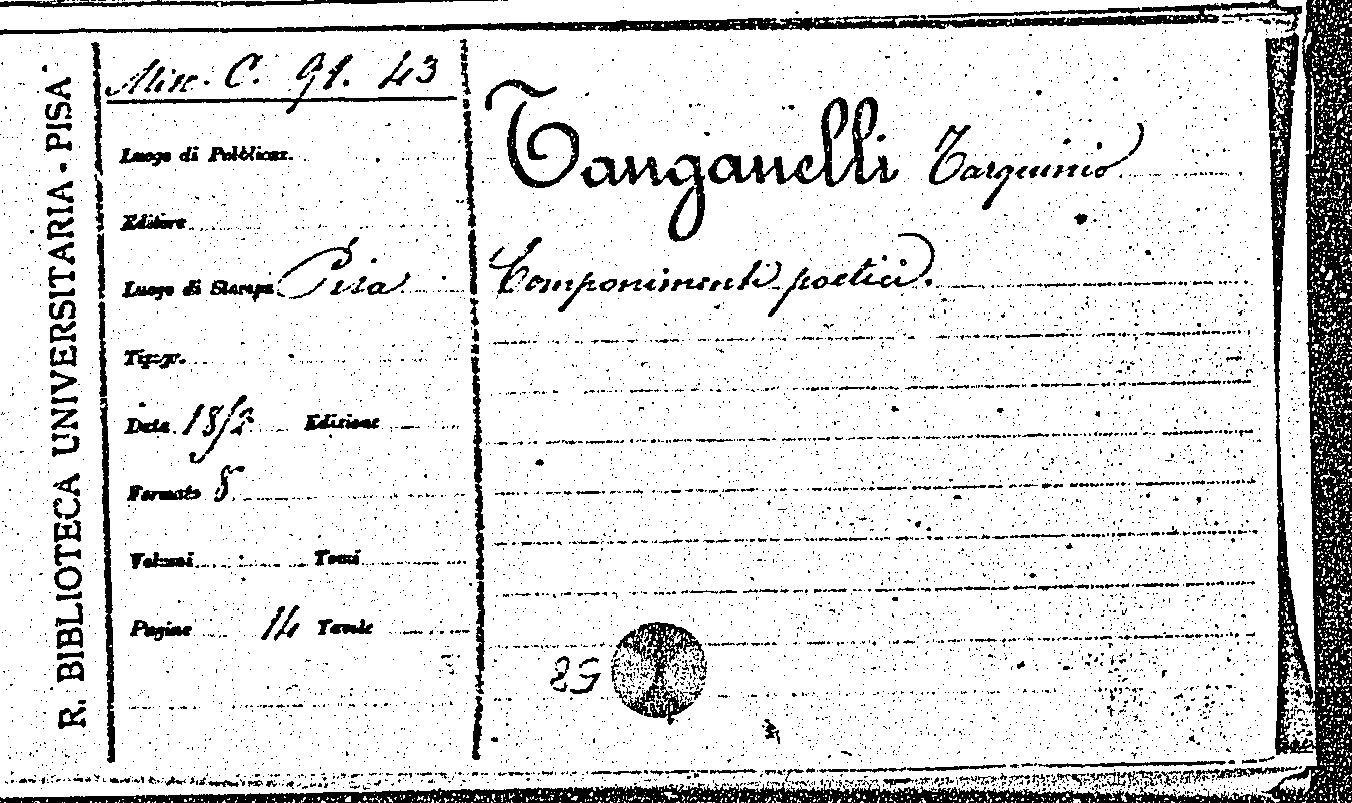 R. BIBLIOTECA UNIVERSITARIA - PISA
Misc. C. 91. 43
Luogo di Pubblicaz.
Editore
Luogo di Stampa Pisa
Tipogr.
Data Edizione
Formato 8
Volumi Tomi
Pagine 14 Tavole
Tanganelli Tarquinio
Componimenti poetici.